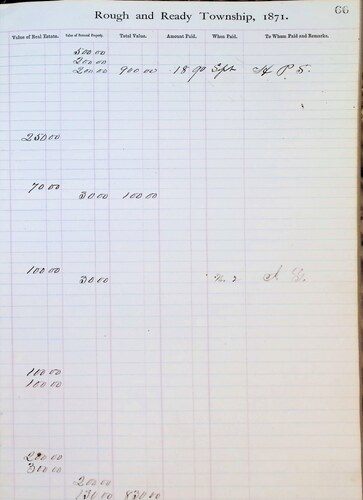 66
Rough and Ready Township, 1871.
Value of Real Estate. Value of Personal Property. Total Value. Amount Paid. When Paid. To Whom Paid and Remarks.
500 00
200 00
200 00 900 00 18 90 Sept H P S.
250 00
70 00
30 00 100 00
100 00
30 00
100 00
100 00
200 00
300 00
200 00
130 00 830 00